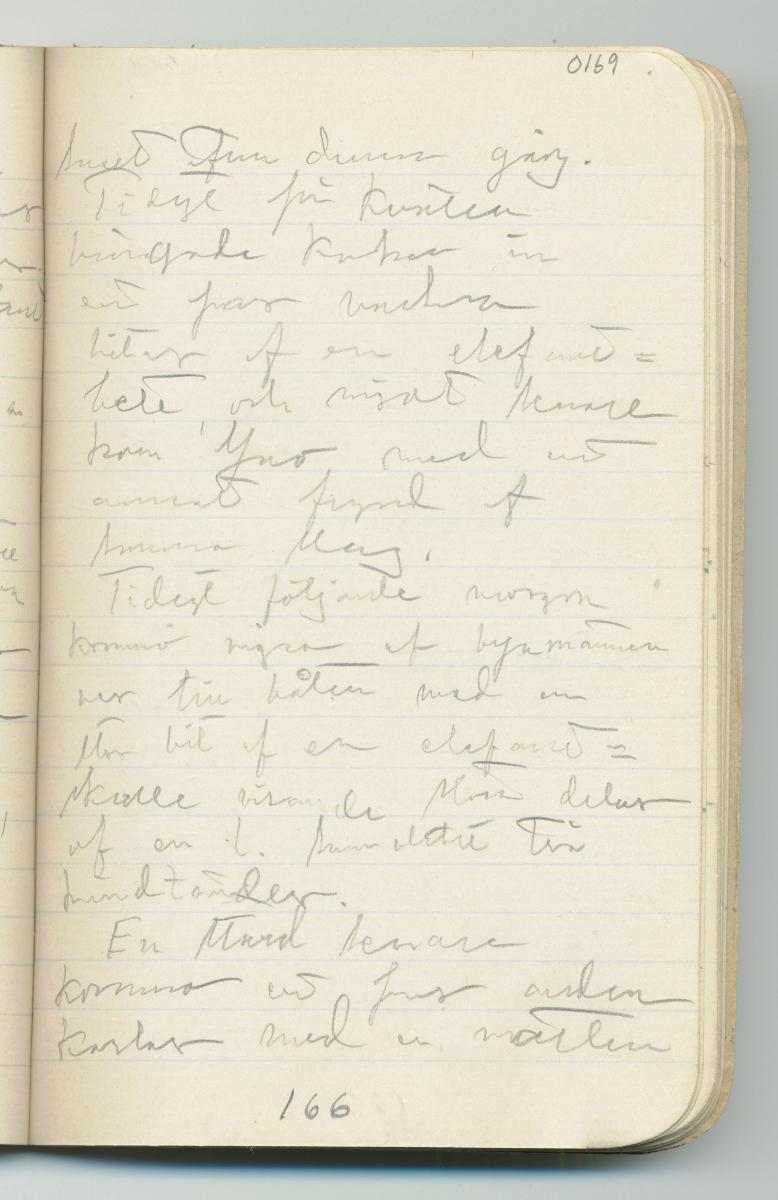 0169
denna gång.
Tidigt på kvällen
bringade kocken in
ett par vackra
bitar af en elefant=
bete och något senare
kom Yao med ett
annat fynd af
samma slag.
Tidigt följande morgon
kommo några af byamännen
ner till båten med en
stor bit af en elefant=
skalle visande stora delar
af en t. samt tre
kindtänder.
En stund senare
kommo ett par andra
karlar med en
166